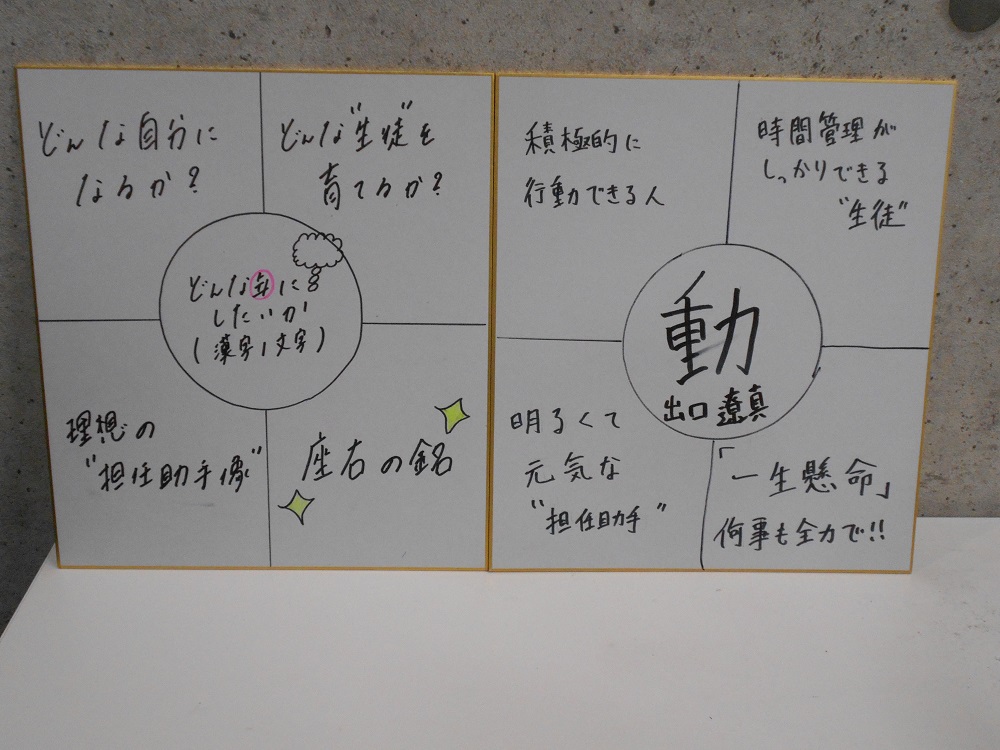 どんな自分に
なるか？
どんな"生徒"を
育てるか？
どんな年に
したいか
(漢字1文字)
理想の
"担任助手像"
座右の銘
積極的に
行動できる人
時間管理が
しっかりできる
"生徒"
動
出口遼真
明るくて
元気な
"担任助手"
「一生懸命」
何事も全力で!!